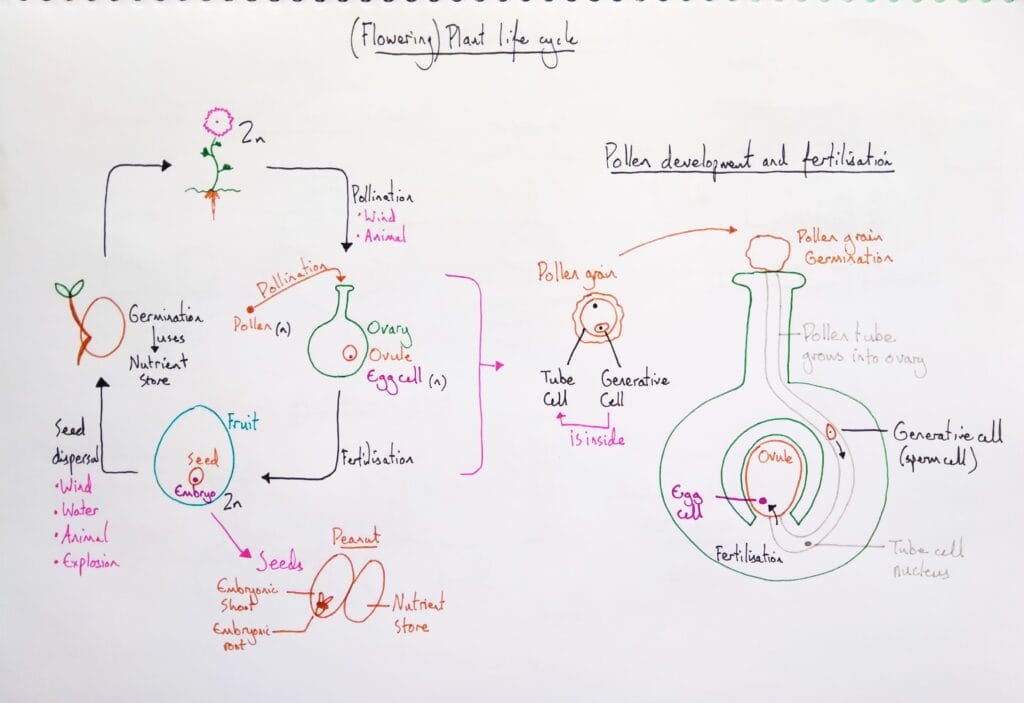 (Flowering) Plant life cycle
2n
Pollination
• Wind
• Animal
Pollination
Pollen (n)
Ovary
Ovule
Egg cell (n)
Germination
uses
Nutrient
Store
Fruit
Seed
Embryo
2n
Fertilisation
Seed
dispersal
• Wind
• Water
• Animal
• Explosion
Seeds
Peanut
Embryonic
Shoot
Embryonic
root
Nutrient
Store
Pollen development and fertilisation
Pollen grain
Tube
Cell
Generative
Cell
is inside
Pollen grain
Germination
Pollen tube
grows into ovary
Generative cell
(sperm cell)
Ovule
Egg
Cell
Fertilisation
Tube cell
nucleus